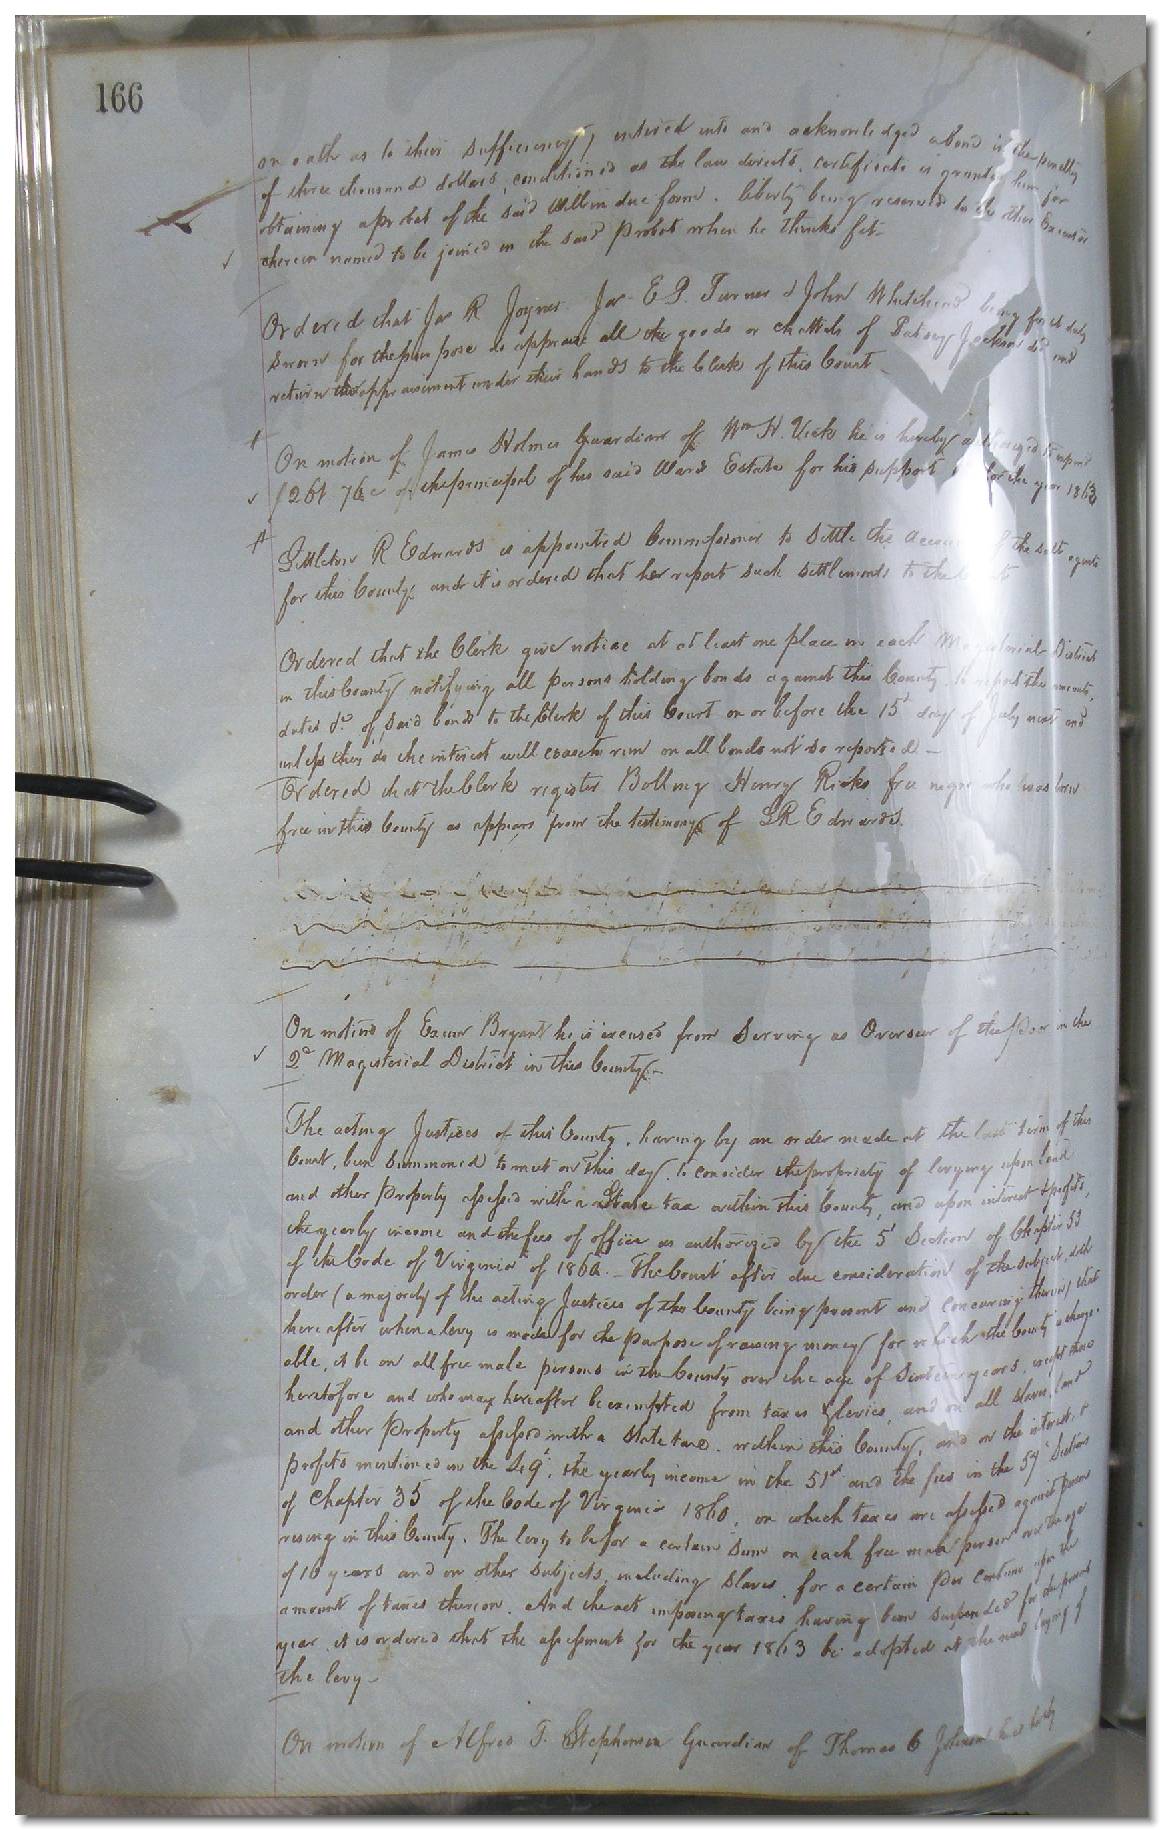 166
on oath as to their sufficiency) entered into and acknowledged a bond in the penalty
of three thousand dollars, conditioned as the law directs, certificate is granted him for
obtaining a probat of the said Will in due form. liberty being reserved to the other Executor
therein named to be joined in the said Probat when he thinks fit-
Ordered that Jas R Joyner Jas E P. Turner & John Whitehead being first duly
sworn for the purpose do appraise all the goods or chattels of Patsey Jackson decd and
return the appraisement under their hands to the Clerk of this Court
On motion of James Holmes Guardian of Wm H. Vick he is hereby
76c of the principal of his said Wards Estate for his support for the year 1863
Littleton R Edwards is appointed Commissioner to settle the of the salt agents
for this County, and it is ordered that he report such settlements to the
Ordered that the Clerk give notice at at least one place in each Magisterial District
in this County notifying all persons holding bonds against this County to report the amounts,
dates &c of said bonds to the Clerk of this Court on or before the 15t day of July next and
unless they do the interest will cease to run on all bonds not so reported. —
Ordered that the Clerk register Bolling Henry Ricks free negro who was born
free in this County as appears from the testimony of LR Edwards.
On motion of Exum Bryant he is excused from serving as Overseer of the Poor in the
2d Magisterial District in this County.-
The acting Justices of this County, having by an order made at the last term of this
Court, been summoned to meet on this day, to consider the propriety of levying upon land
and other Property assessed with a State tax within this County, and upon interest & profits,
the yearly income and the fees of office as authorized by the 5t Section of Chapter 53
of the Code of Virginia of 1860. - The Court after due consideration of the subject, doth
order (a majority of the acting Justices of the County being present and concurring therein) that
hereafter when a levy is made for the purpose of raising money for which the County is charge-
able, it be on all free male persons in the County over the age of Sixteen years, except those
heretofore and who may hereafter be exempted from taxes & levies, and on all slaves, land
and other Property assessed with a State tax. within this County, and on the interest &
profits mentioned in the 49t, the yearly income in the 51st and the fees in the 54t Sections
of Chapter 35 of the Code of Virginia 1860, on which taxes are assessed against persons
in this County. The levy to be for a certain sum on each free male person over the age
of 16 years and on other subjects, including slaves, for a certain per centum upon the
amount of taxes thereon. And the act imposing taxes having been suspended for the present
year, it is ordered that the assessment for the year 1863 be adopted at the next laying of
the levy-
On motion of Alfred T. Stephenson Guardian of Thomas C Johnson he is hereby